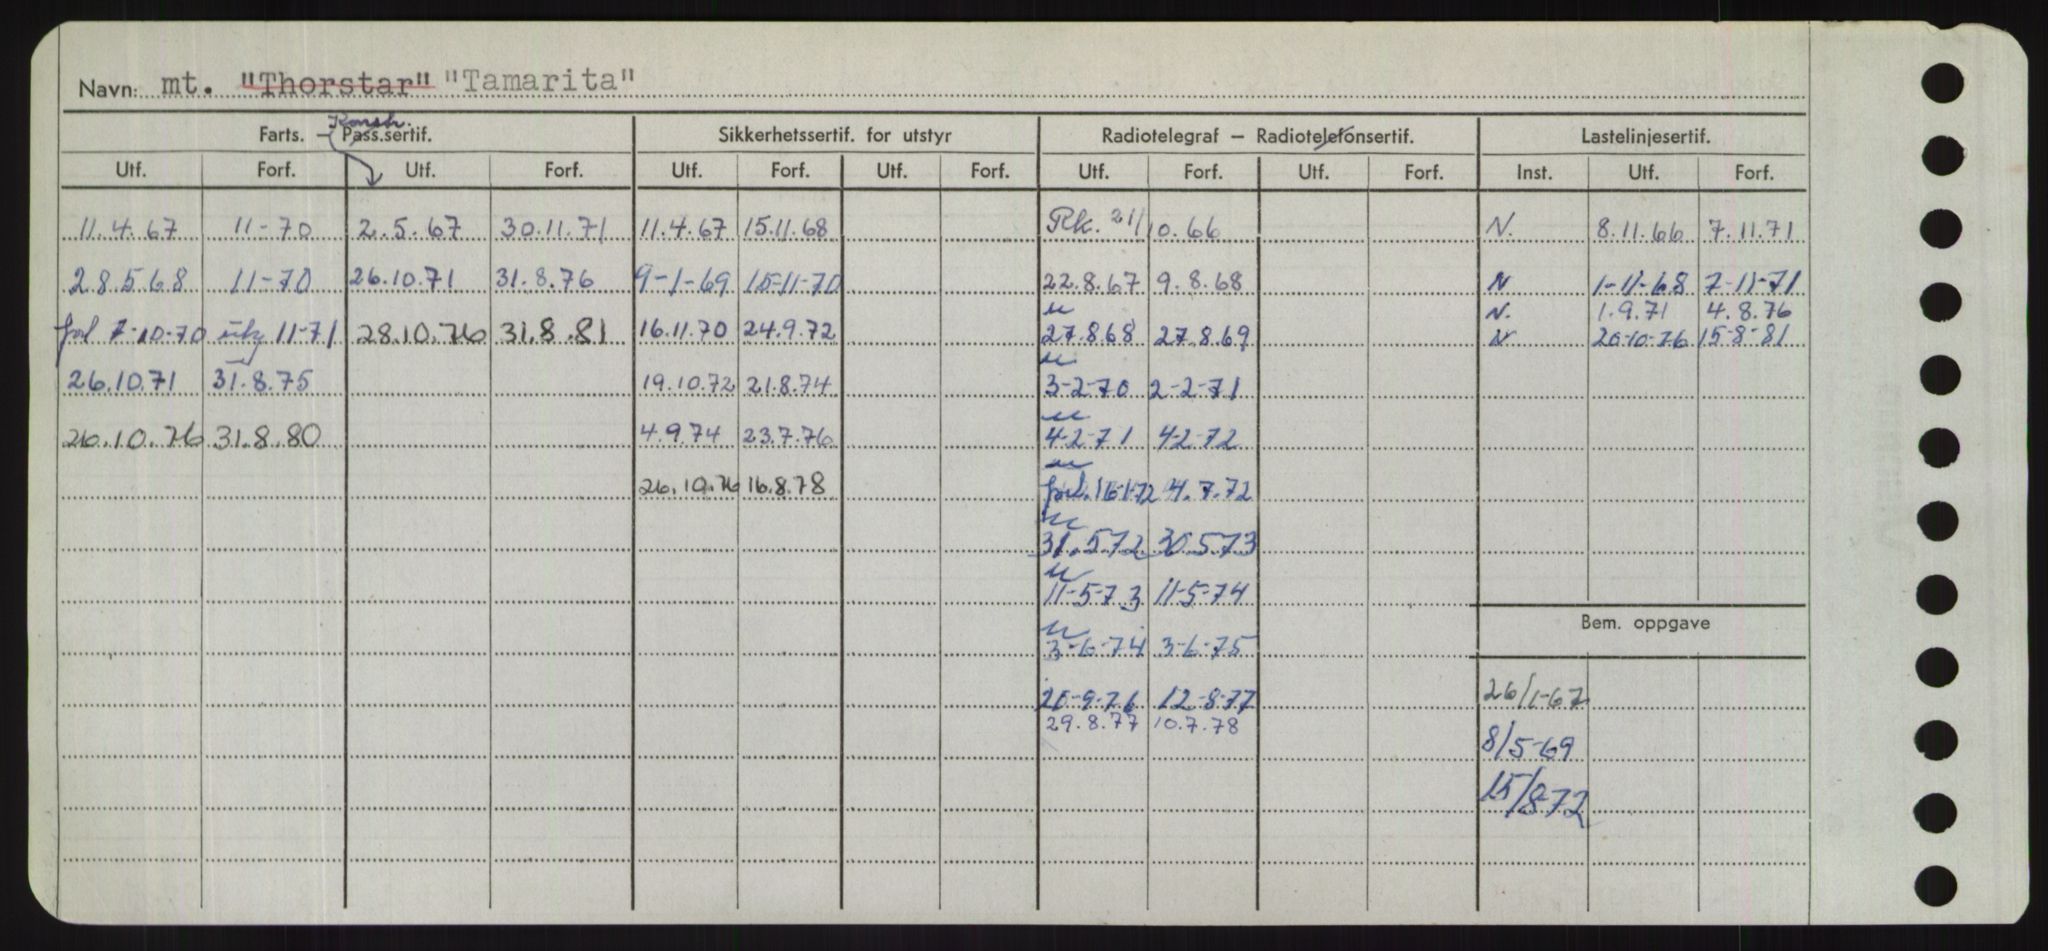 Navn: mt. "Thorstar" "Tamarita"
Farts. – Pass.sertif. Konstr. Sikkerhetssertif. for utstyr Radiotelegraf – Radiotelefonsertif. Lastelinjesertif.
Utf. Forf. Utf. Forf. Utf. Forf. Utf. Forf. Utf. Forf. Utf. Forf. Inst. Utf. Forf.
11.4.67 11-70 2.5.67 30.11.71 11.4.67 15.11.68 Rk. 21/10.66 N. 8.11.66 7.11.71
28.5.68 11-70 26.10.71 31.8.76 9-1-69 15-11-70 22.8.67 9.8.68 N 1-11-68 7-11-71
N. 1.9.71 4.8.76
forl 7-10-70 11-71 28.10.76 31.8.81 16.11.70 24.9.72 27.8.68 27.8.69 N 20-10-76 15-8-81
26.10.71 31.8.75 19.10.72 21.8.74 3-2-70 2-2-71
26.10.76 31.8.80 4.9.74 23.7.76 4-2-71 4-2-72
26.10.76 16.8.78 forl. 11-1-72 4.7.72
31.5.72 30.5.73
11-5-73 11-5-74
Bem. oppgave
3-6-74 3-6-75
26/1-67
20-9-76 12-8-77
29.8.77 10.7.78
8/5-69
15/8-72